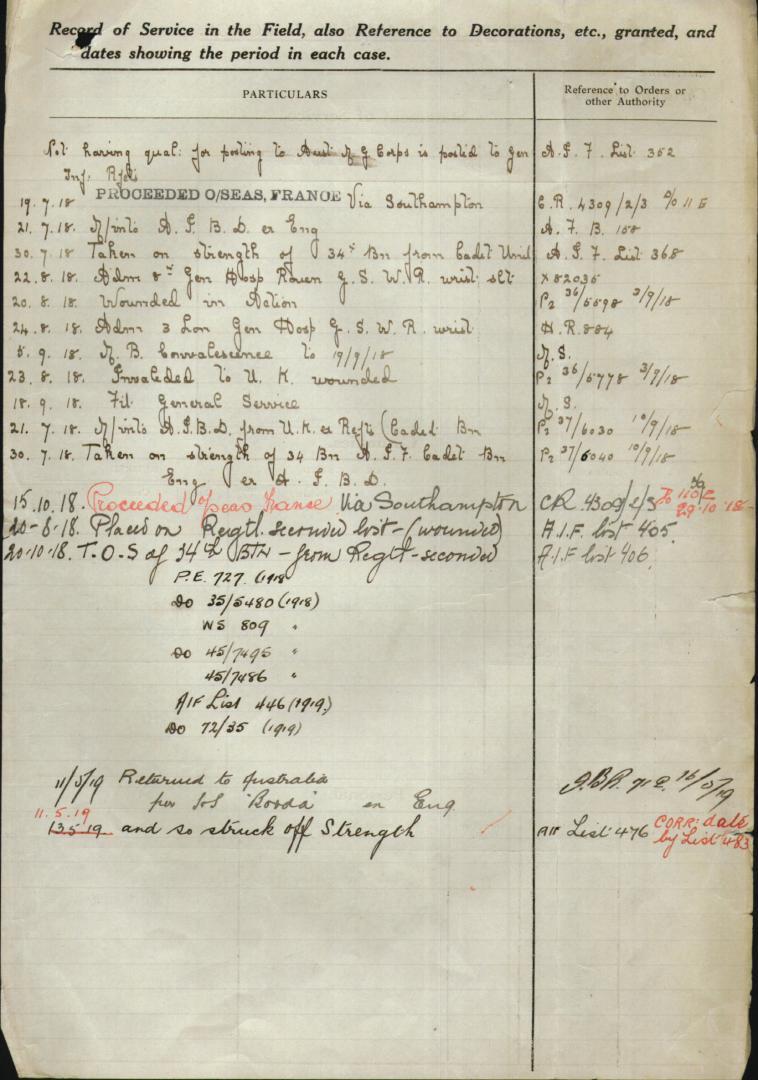 Record of Service in the Field, also Reference to Decorations, etc., granted, and
dates showing the period in each case.
PARTICULARS
Reference to Orders or
other Authority
Not having qual: for posting to Aust M G Corps is posted to Gen A.I.F. List 352
Inf: Rfts
PROCEEDED O/SEAS, FRANCE Via Southampton
19.7.18 C.R. 4309/2/3
21.7.18. M/into A.I.B.D. ex Eng A.F.B. 158
30.7.18 Taken on strength of 34th Bn from Cadet Unit A.I.F. List 368
22.8.18. Adm 8th Gen Hosp Rouen G.S.W. R. wrist slt X82035
20.8.18. Wounded in Action P2 36/5598 3/9/18
24.8.18. Adm 3 Lon Gen Hosp G.S.W. R. wrist H.R. 884
5.9.18. M.B. Convalescence to 19/9/18 M.S.
23.8.18. Invalided to U.K. wounded P2 36/5778 3/9/18
18.9.18. Fit General Service M.S.
21.7.18. M/into A.I.B.D. from U.K. ex Rfts (Cadet Bn P2 37/6030 10/9/18
30.7.18. Taken on strength of 34 Bn A.I.F. Cadet Bn P2 37/6040 10/9/18
Eng ex A.I.B.D.
15.10.18. Proceeded o/seas France Via Southampton CR. 4309/2/3 29-10-18
20-8-18. Placed on Regtl. seconded list - (wounded) A.I.F. list 405.
20.10.18. T.O.S of 34th Btn - from Regtl-seconded A.I.F list 406.
P.E. 727. (1918
Do 35/5480 (1918)
WS 809 "
Do 45/7495 "
45/7486 "
AIF List 446 (1919.)
Do 72/35 (1919)
11/5/19 Returned to Australia 16/5/19
per "Booda" ex Eng
11.5.19
13 5 19 and so struck off Strength AIF List 476 CORR: date
by List 483